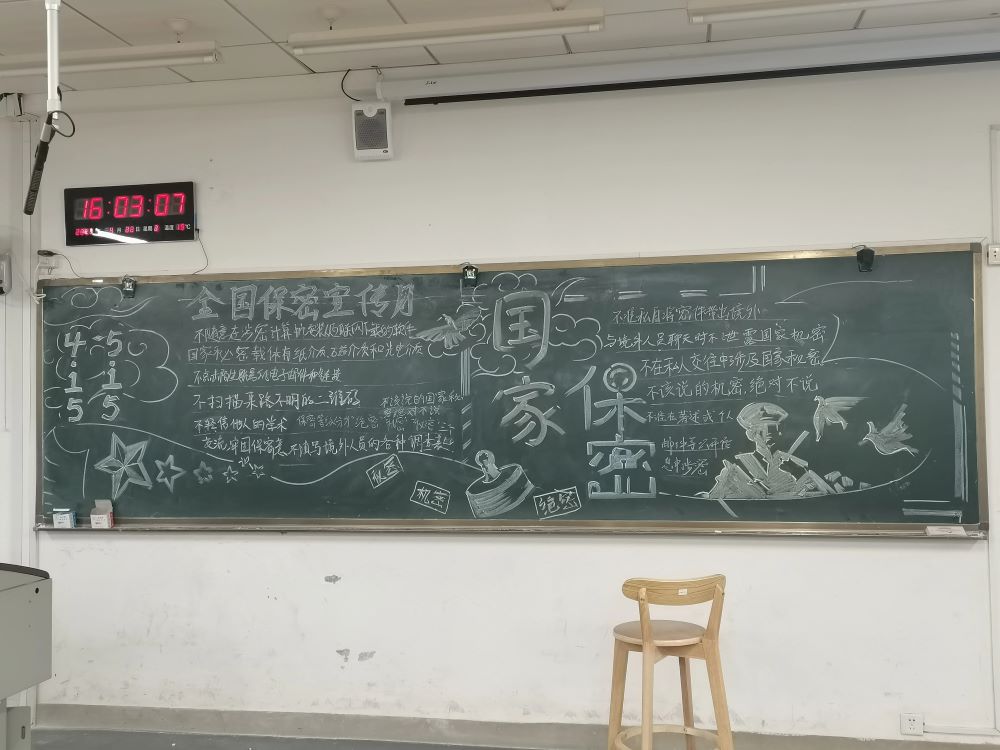 16:03:07
全国保密宣传月
4·5
i i
5 5
不随意在涉密计算机安装互联网下载的软件
国家秘密载体有纸介质、磁介质和光电介质
电子邮件和链接
不扫描来路不明的二维码
不轻信他人的学术
交流牢固保密关不填写境外人员的各种调查表
不该说的国家秘
密绝对不说
秘密
机密
绝密
国家
保密
不准私自将密件带出境外
与境外人员聊天时不泄露国家机密
不在私人交往中涉及国家秘密
不该说的机密,绝对不说
不准在著述或私人
邮件等文件中
涉密